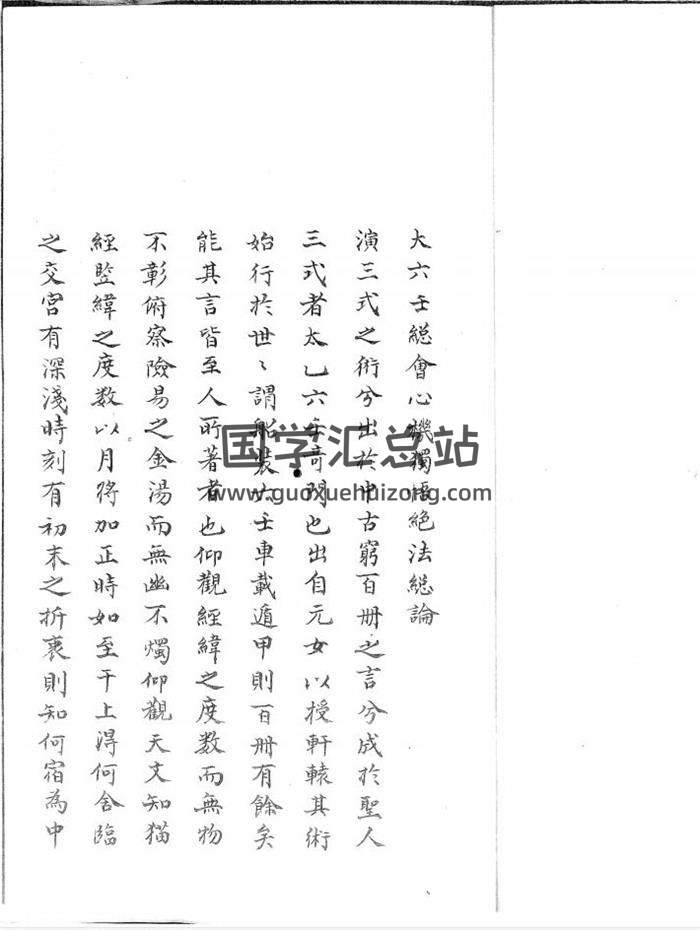 大六壬総會心機獨悟絶法総論
演三式之術兮出於中古窮百册之言兮成於聖人
三式者太乙六壬奇門也出自元女以授軒轅其術
始行於世〻謂船装六壬車載遁甲則百册有餘矣
能其言皆至人所著者也仰觀經緯之度数而無物
不彰俯察險易之金湯而無幽不燭仰觀天文知猫
經監緯之度数以月将加正時如至干上得何舍臨
之交宮有深淺時刻有初末之折衷則知何宿為中
国学汇总站
www.guoxuehuizong.com